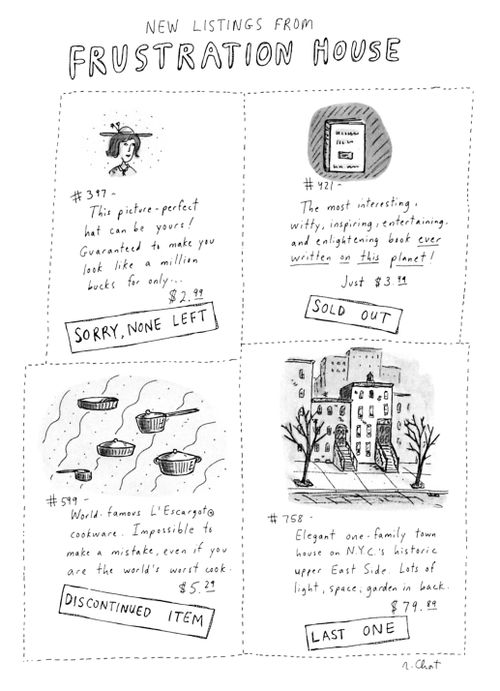 NEW LISTINGS FROM
FRUSTRATION HOUSE
#397-
This picture-perfect
hat can be yours!
Guaranteed to make you
look like a million
bucks for only...
$2.99
SORRY, NONE LEFT
#421-
The most interesting,
witty, inspiring, entertaining,
and enlightening book ever
written on this planet!
Just $3.99
SOLD OUT
#599-
World-famous L'Escargot®
cookware. Impossible to
make a mistake, even if you
are the world's worst cook.
$5.29
DISCONTINUED ITEM
#758-
Elegant one-family town
house on N.Y.C.'s historic
upper East Side. Lots of
light, space, garden in back.
$79.89
LAST ONE
r. Chast